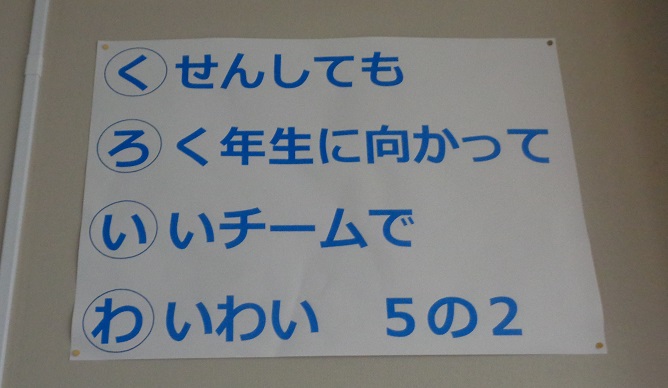 くせんしても
ろく年生に向かって
いいチームで
わいわい　５の２